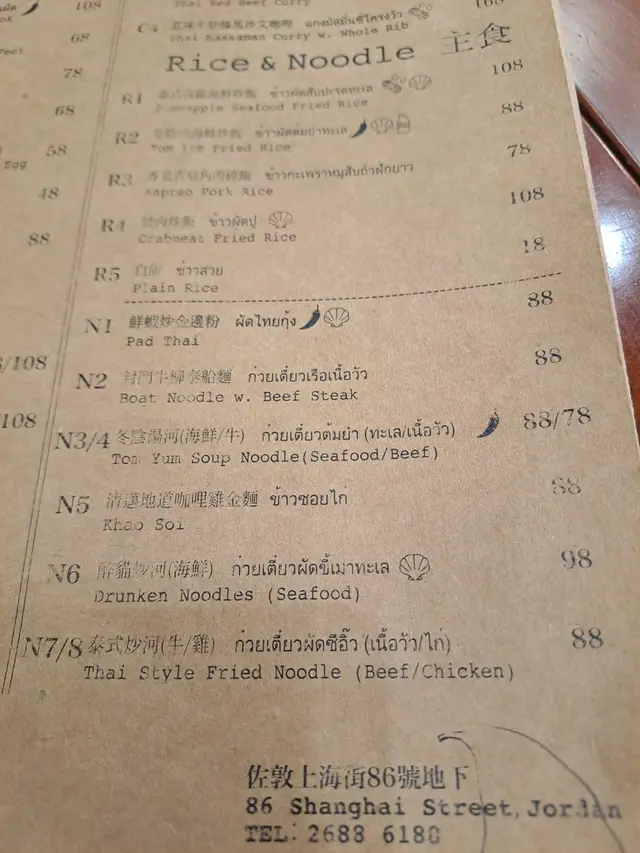 108
68
78
68
58
Egg
48
88
/108
108
Thai Red Beef Curry
168
C4
แกงมัสมั่นซี่โครงวัว
Thai Massaman Curry w. Whole Rib
Rice & Noodle 主食
R1 ข้าวผัดสับปะรดทะเล 108
Pineapple Seafood Fried Rice
R2 ข้าวผัดต้มยำทะเล 88
Tom Yum Fried Rice
R3 ข้าวกะเพราหมูสับถั่วฝักยาว 78
Kaprao Pork Rice
R4 蟹肉炒飯 ข้าวผัดปู 108
Crabmeat Fried Rice
R5 白飯 ข้าวสวย 18
Plain Rice
N1 鮮蝦炒金邊粉 ผัดไทยกุ้ง 88
Pad Thai
N2 封門牛柳泰船麵 ก๋วยเตี๋ยวเรือเนื้อวัว 88
Boat Noodle w. Beef Steak
N3/4 冬陰湯河(海鮮/牛) ก๋วยเตี๋ยวต้มยำ (ทะเล/เนื้อวัว) 88/78
Tom Yum Soup Noodle(Seafood/Beef)
N5 清邁地道咖哩雞金麵 ข้าวซอยไก่ 88
Khao Soi
N6 醉貓炒河(海鮮) ก๋วยเตี๋ยวผัดขี้เมาทะเล 98
Drunken Noodles (Seafood)
N7/8 泰式炒河(牛/雞) ก๋วยเตี๋ยวผัดซีอิ๊ว (เนื้อวัว/ไก่) 88
Thai Style Fried Noodle (Beef/Chicken)
佐敦上海街86號地下
86 Shanghai Street, Jordan
TEL: 2688 6180